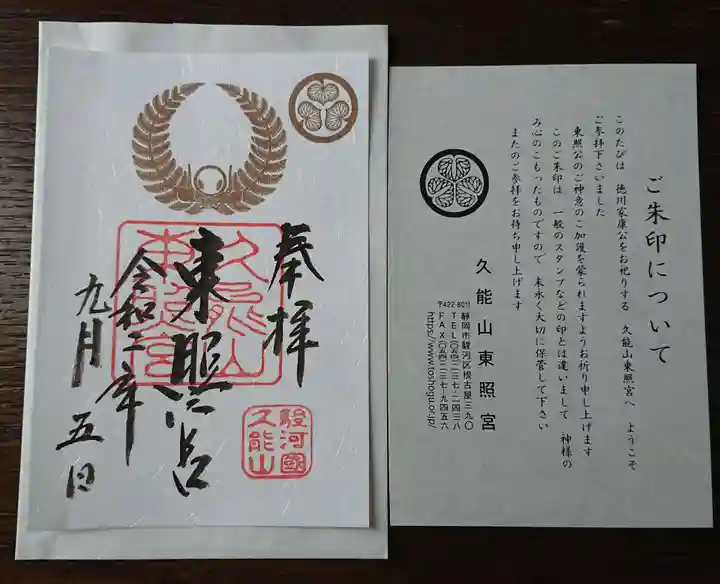 奉拝
東照宮
令和二年
九月五日
久能山
東照宮
駿河國
久能山
ご朱印について
このたびは 徳川家康公をお祀りする 久能山東照宮へ ようこそ
ご参拝下さいました
東照公のご神意のご加護を蒙られますようお祈り申し上げます
このご朱印は 一般のスタンプなどの印とは違いまして 神様の
み心のこもったものですので 末永く大切に保管して下さい
またのご参拝をお待ち申し上げます
久能山東照宮
〒422-8011
静岡市駿河区根古屋三九〇
TEL(〇五四)二三七-二四三八
FAX(〇五四)二三七-九四五六
https://www.toshogu.or.jp/